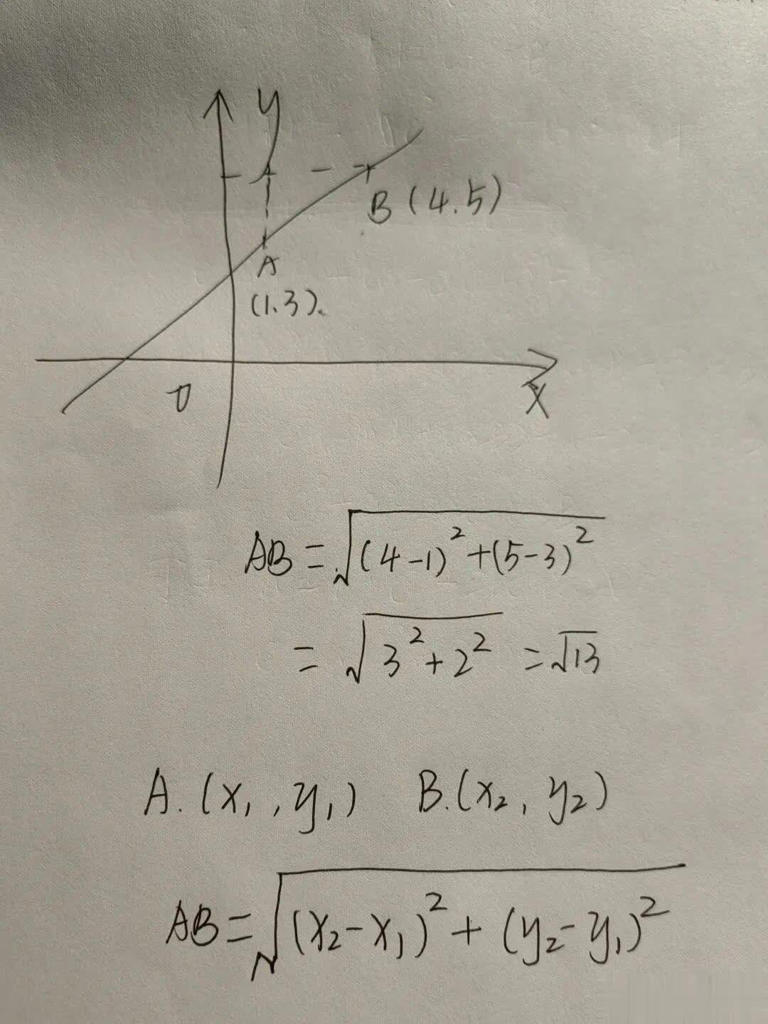 y
B (4.5)
A
(1.3).
0
x
AB = √(4-1)² + (5-3)²
= √3² + 2² = √13
A. (x₁, y₁) B. (x₂, y₂)
AB = √(x₂-x₁)² + (y₂-y₁)²